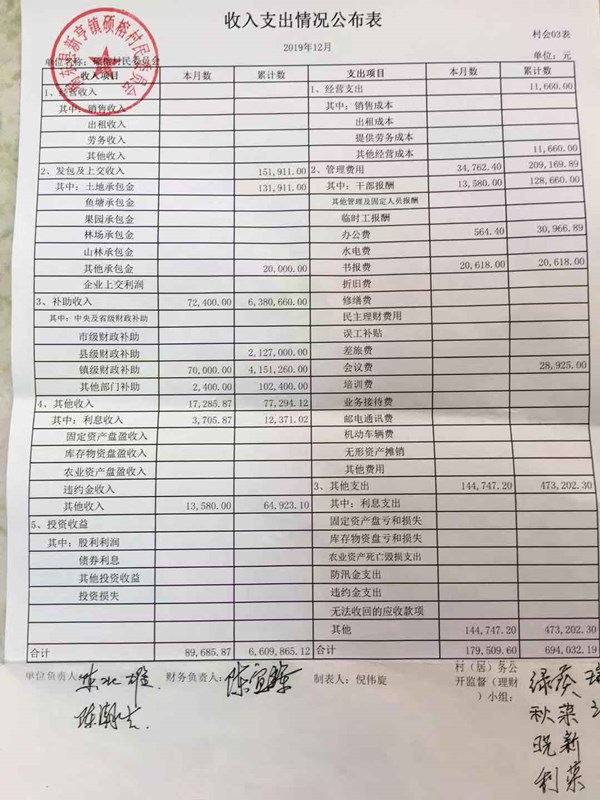 收入支出情况公布表
村会03表
2019年12月
单位名称：硕榕村民委员会 单位：元
收入项目 本月数 累计数 支出项目 本月数 累计数
1、经营收入 1、经营支出 11,660.00
其中：销售收入 其中：销售成本
出租收入 出租成本
劳务收入 提供劳务成本
其他收入 其他经营成本 11,660.00
2、发包及上交收入 151,911.00 2、管理费用 34,762.40 209,169.89
其中：土地承包金 131,911.00 其中：干部报酬 13,580.00 128,660.00
鱼塘承包金 其他管理及固定人员报酬
果园承包金 临时工报酬
林场承包金 办公费 564.40 30,966.89
山林承包金 水电费
其他承包金 20,000.00 书报费 20,618.00 20,618.00
企业上交利润 折旧费
3、补助收入 72,400.00 6,380,660.00 修缮费
其中：中央及省级财政补助 民主理财费用
市级财政补助 误工补贴
县级财政补助 2,127,000.00 差旅费
镇级财政补助 70,000.00 4,151,260.00 会议费 28,925.00
其他部门补助 2,400.00 102,400.00 培训费
4、其他收入 17,285.87 77,294.12 业务接待费
其中：利息收入 3,705.87 12,371.02 邮电通讯费
固定资产盘盈收入 机动车辆费
库存物资盘盈收入 无形资产摊销
农业资产盘盈收入 其他费用
违约金收入 3、其他支出 144,747.20 473,202.30
其他收入 13,580.00 64,923.10 其中：利息支出
5、投资收益 固定资产盘亏和损失
其中：股利利润 库存物资盘亏和损失
债券利息 农业资产死亡毁损支出
其他投资收益 防汛金支出
投资损失 违约金支出
无法收回的应收款项
其他 144,747.20 473,202.30
合计 89,685.87 6,609,865.12 合计 179,509.60 694,032.19
单位负责人： 财务负责人： 制表人：倪伟旋 村（居）务公
开监督（理财
）小组：
秋
晓新
利菜